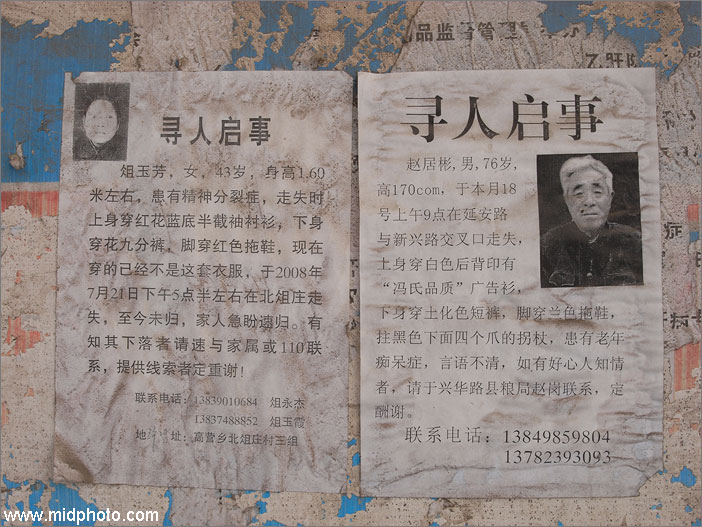 品监督管理
乙肝
寻人启事
俎玉芳，女，43岁，身高1.60
米左右，患有精神分裂症，走失时
上身穿红花蓝底半截袖衬衫，下身
穿花九分裤，脚穿红色拖鞋，现在
穿的已经不是这套衣服，于2008年
7月21日下午5点半左右在北俎庄走
失，至今未归，家人急盼速归。有
知其下落者请速与家属或110联
系，提供线索者定重谢！
联系电话：13839010684 俎永杰
13837488852 俎玉霞
地 址：高营乡北俎庄村王组
寻人启事
赵居彬，男，76岁，
高170com，于本月18
号上午9点在延安路
与新兴路交叉口走失，
上身穿白色后背印有
“冯氏品质”广告衫，
下身穿土化色短裤，脚穿兰色拖鞋，
拄黑色下面四个爪的拐杖，患有老年
痴呆症，言语不清，如有好心人知情
者，请于兴华路县粮局赵岗联系，定
酬谢。
联系电话：13849859804
13782393093
症
www.midphoto.com